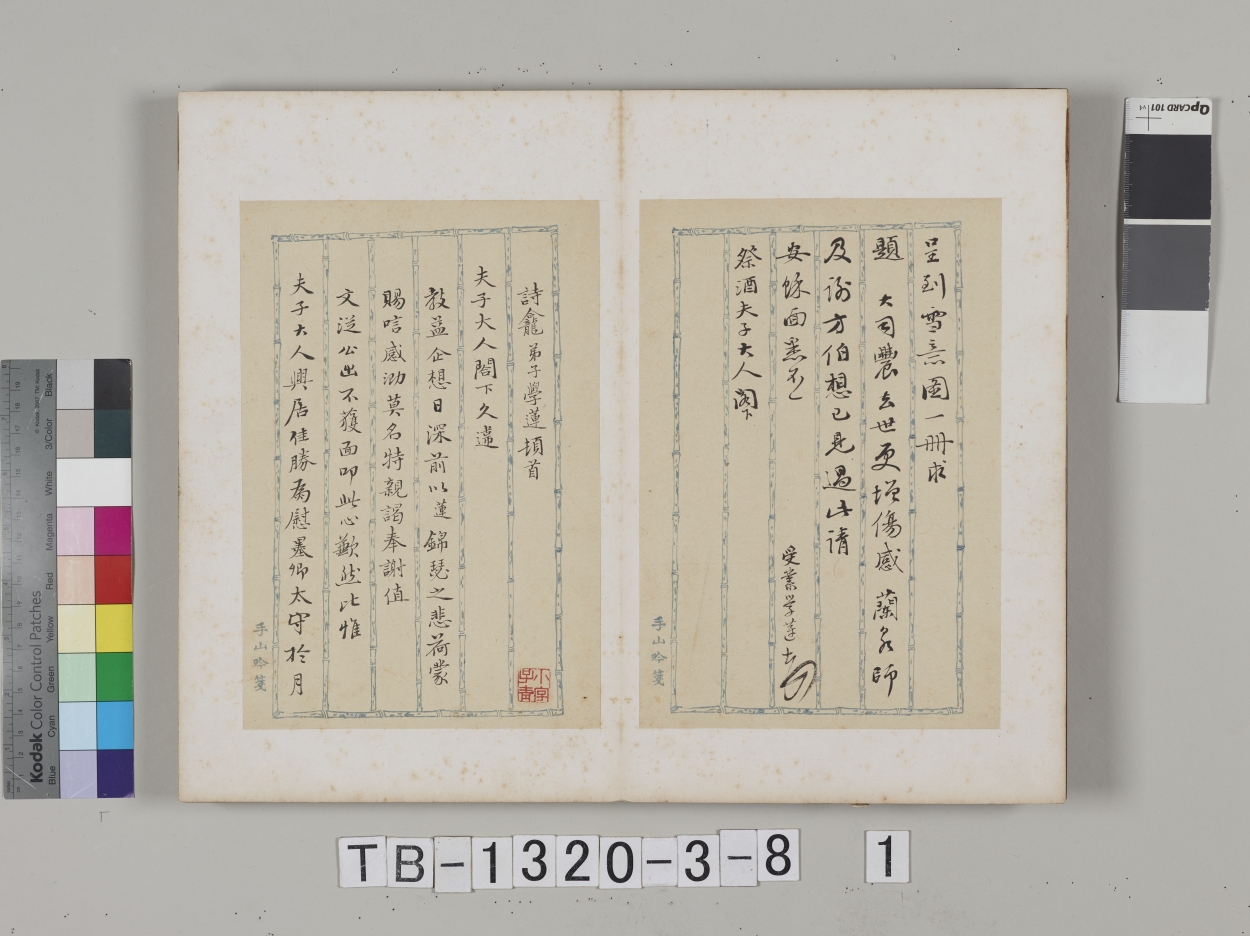 呈到雪意圖一冊求
題 大司農去世更增傷感 蘭泉師
及謝方伯想已見過此請
安餘面悉不一
受業學蓮
祭酒夫子大人閣下
手山吟箋
詩龕弟子學蓮頓首
夫子大人閣下久違
教益企想日深前以蓮錦瑟之悲荷蒙
賜唁感泐莫名特親謁奉謝值
文從公出不獲面叩此心歉然比惟
夫子大人興居佳勝為慰墨卿太守於月
手山吟箋
TB-1320-3-8 1
Kodak Color Control Patches
Blue Cyan Green Yellow Red Magenta White 3/Color Black
QPCARD 101